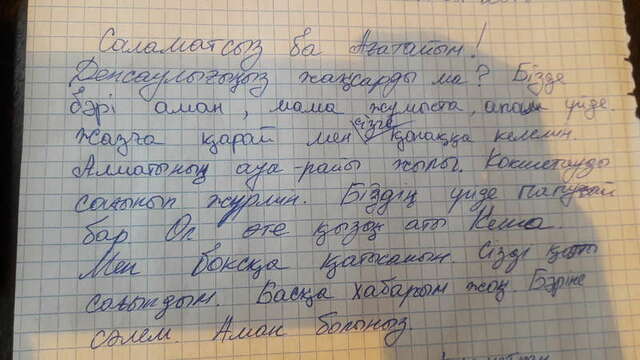 Саламатсыз ба Ағатайым!
Денсаулығыңыз жақсарды ма? Бізде
бәрі аман, мама жұмыста, апам үйде.
жазға қарай мен сізге қонаққа келемін.
Алматының ауа-райы жылы. Көкшетауды
сағынып жүрмін. Біздің үйде попугай
бар. Ол өте қызық аты Кеша.
Мен боксқа қатысамын. Сізді қатты
сағындым. Басқа хабарым жоқ. Бәріне
сәлем. Аман болыңыз.